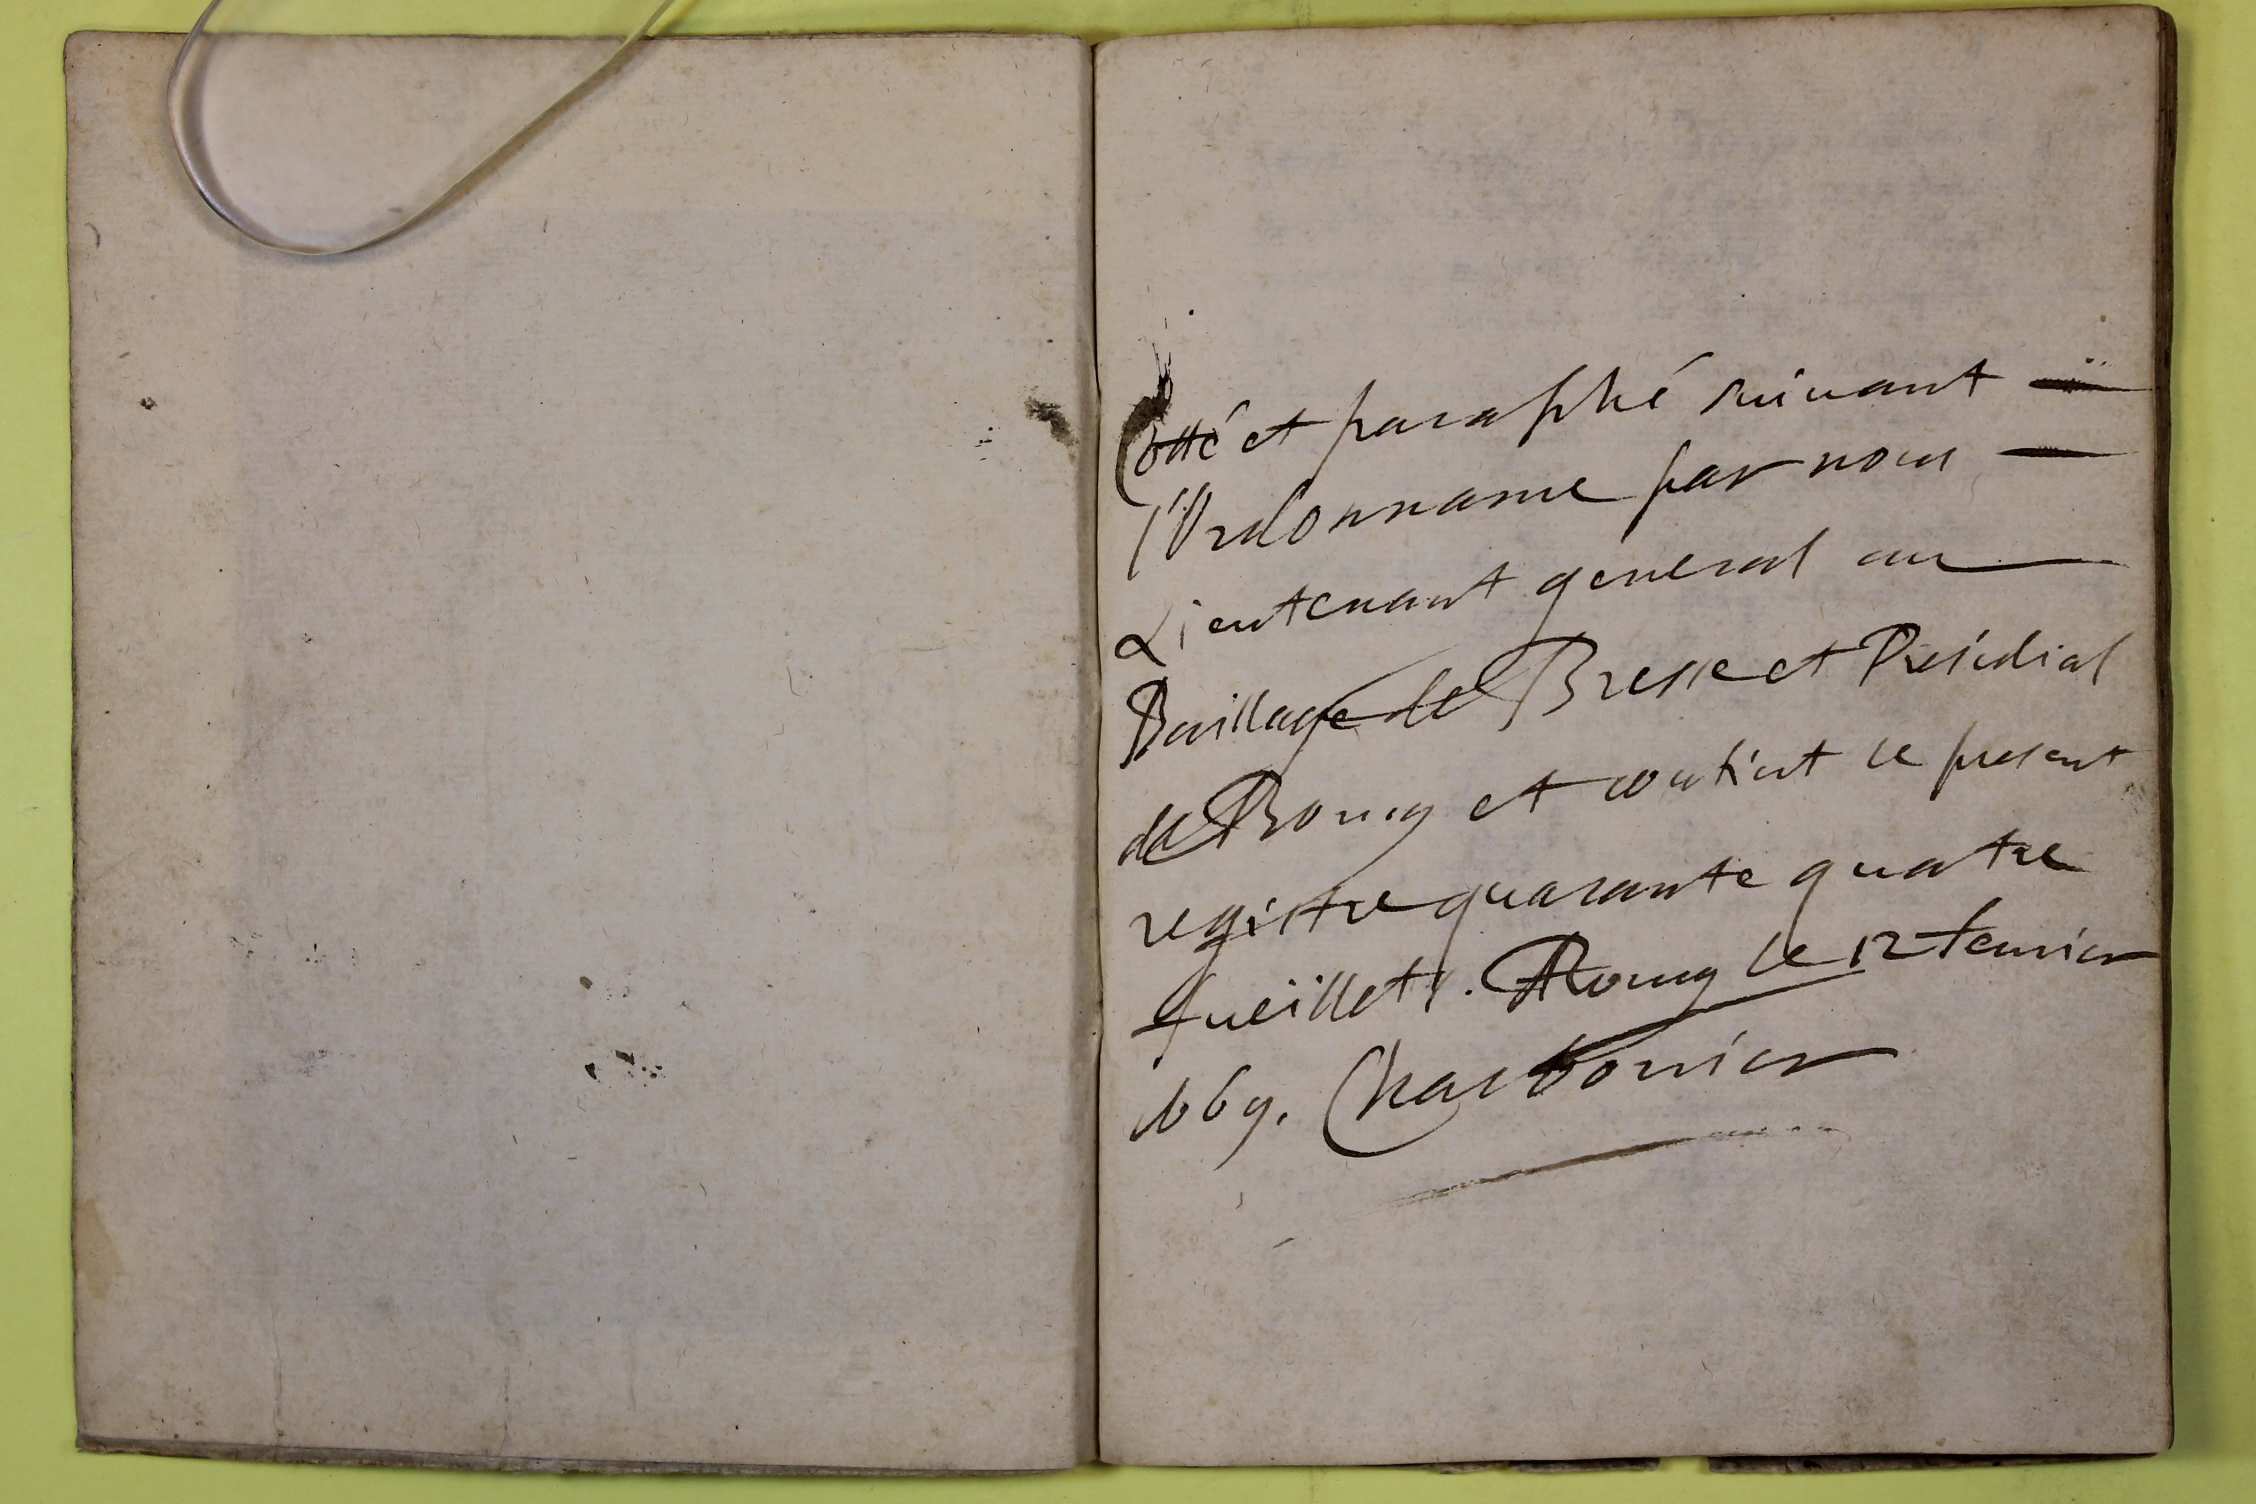 Cotté et paraphé suivant
l'Ordonnance par nous
Lieutenant general au
Baillage de Bresse et Presidial
de Bourg et contient le present
registre quarante quatre
fueillets. A Bourg le 12 feuvier
1669. Charbonnier